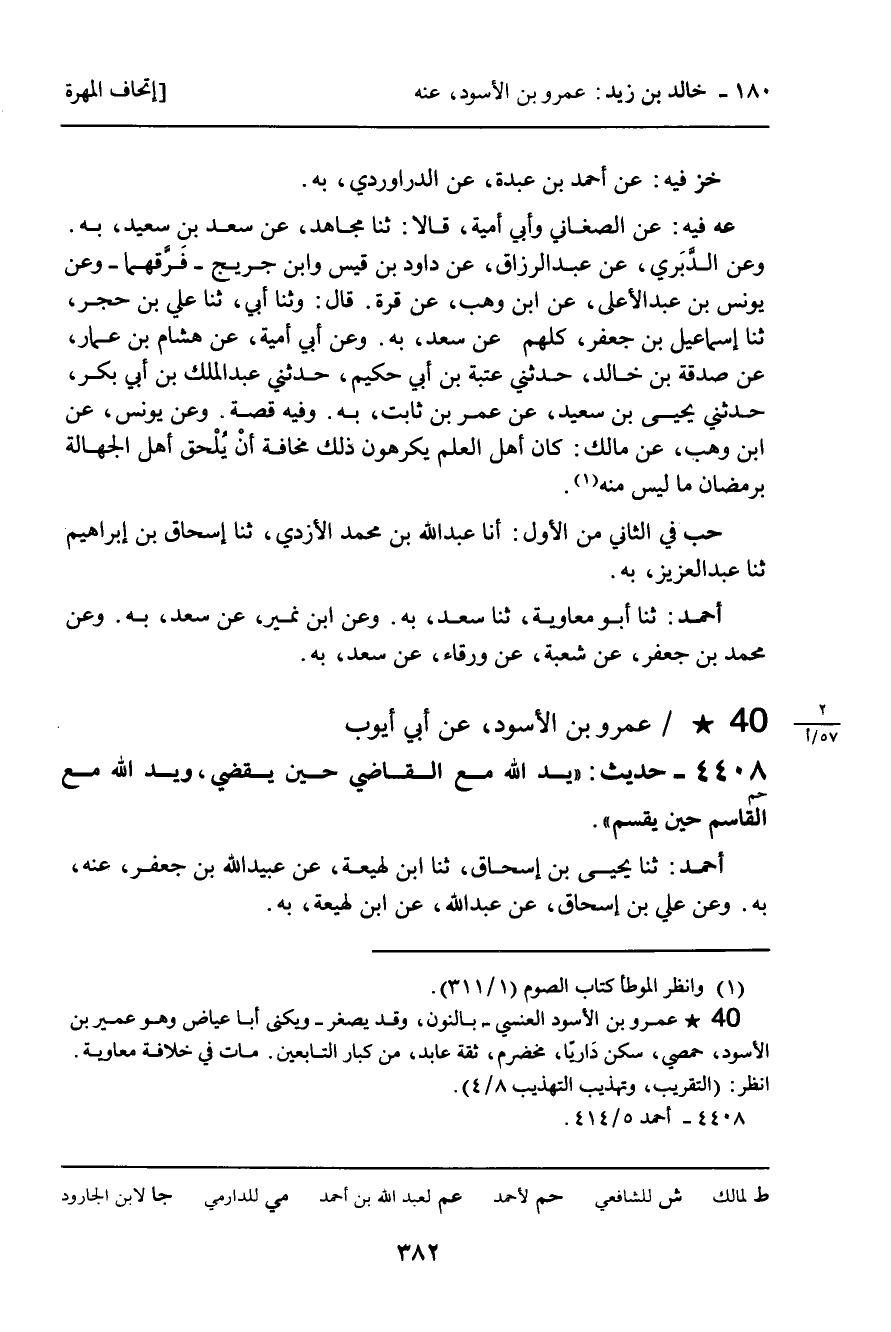 ١٨٠ - خالد بن زيد: عمرو بن الأسود، عنه [إتحاف المهرة
خز فيه: عن أحمد بن عبدة، عن الدراوردي، به.
عه فيه: عن الصغاني وأبي أمية، قالا: ثنا مجاهد، عن سعد بن سعيد، به.
وعن الدَّبَري، عن عبدالرزاق، عن داود بن قيس وابن جريج - فَرَّقهما - وعن
يونس بن عبدالأعلى، عن ابن وهب، عن قرة. قال: وثنا أبي، ثنا علي بن حجر،
ثنا إسماعيل بن جعفر، كلهم عن سعد، به. وعن أبي أمية، عن هشام بن عمار،
عن صدقة بن خالد، حدثني عتبة بن أبي حكيم، حدثني عبدالملك بن أبي بكر،
حدثني يحيى بن سعيد، عن عمر بن ثابت، به. وفيه قصة. وعن يونس، عن
ابن وهب، عن مالك: كان أهل العلم يكرهون ذلك مخافة أنْ يُلْحق أهل الجهالة
برمضان ما ليس منه(١).
حب في الثاني من الأول: أنا عبدالله بن محمد الأزدي، ثنا إسحاق بن إبراهيم
ثنا عبدالعزيز، به.
أحمد: ثنا أبو معاوية، ثنا سعد، به. وعن ابن نمير، عن سعد، به. وعن
محمد بن جعفر، عن شعبة، عن ورقاء، عن سعد، به.
40 ★ / عمرو بن الأسود، عن أبي أيوب
٢
٥٧/أ
٤٤٠٨ - حديث: «يد الله مع القاضي حين يقضي، ويد الله مع
حم
القاسم حين يقسم».
أحمد: ثنا يحيى بن إسحاق، ثنا ابن لهيعة، عن عبيدالله بن جعفر، عنه،
به. وعن علي بن إسحاق، عن عبدالله، عن ابن لهيعة، به.
(١) وانظر الموطأ كتاب الصوم (٣١١/١).
40 ★ عمرو بن الأسود العنسي - بالنون، وقد يصغر - ويكنى أبا عياض وهو عمير بن
الأسود، حمصي، سكن دَاريّا، مخضرم، ثقة عابد، من كبار التابعين. مات في خلافة معاوية.
انظر: (التقريب، وتهذيب التهذيب ٤/٨).
٤٤٠٨ - أحمد ٤١٤/٥.
ط لمالك ش للشافعي حم لأحمد عم لعبد الله بن أحمد مي للدارمي جا لابن الجارود
٣٨٢